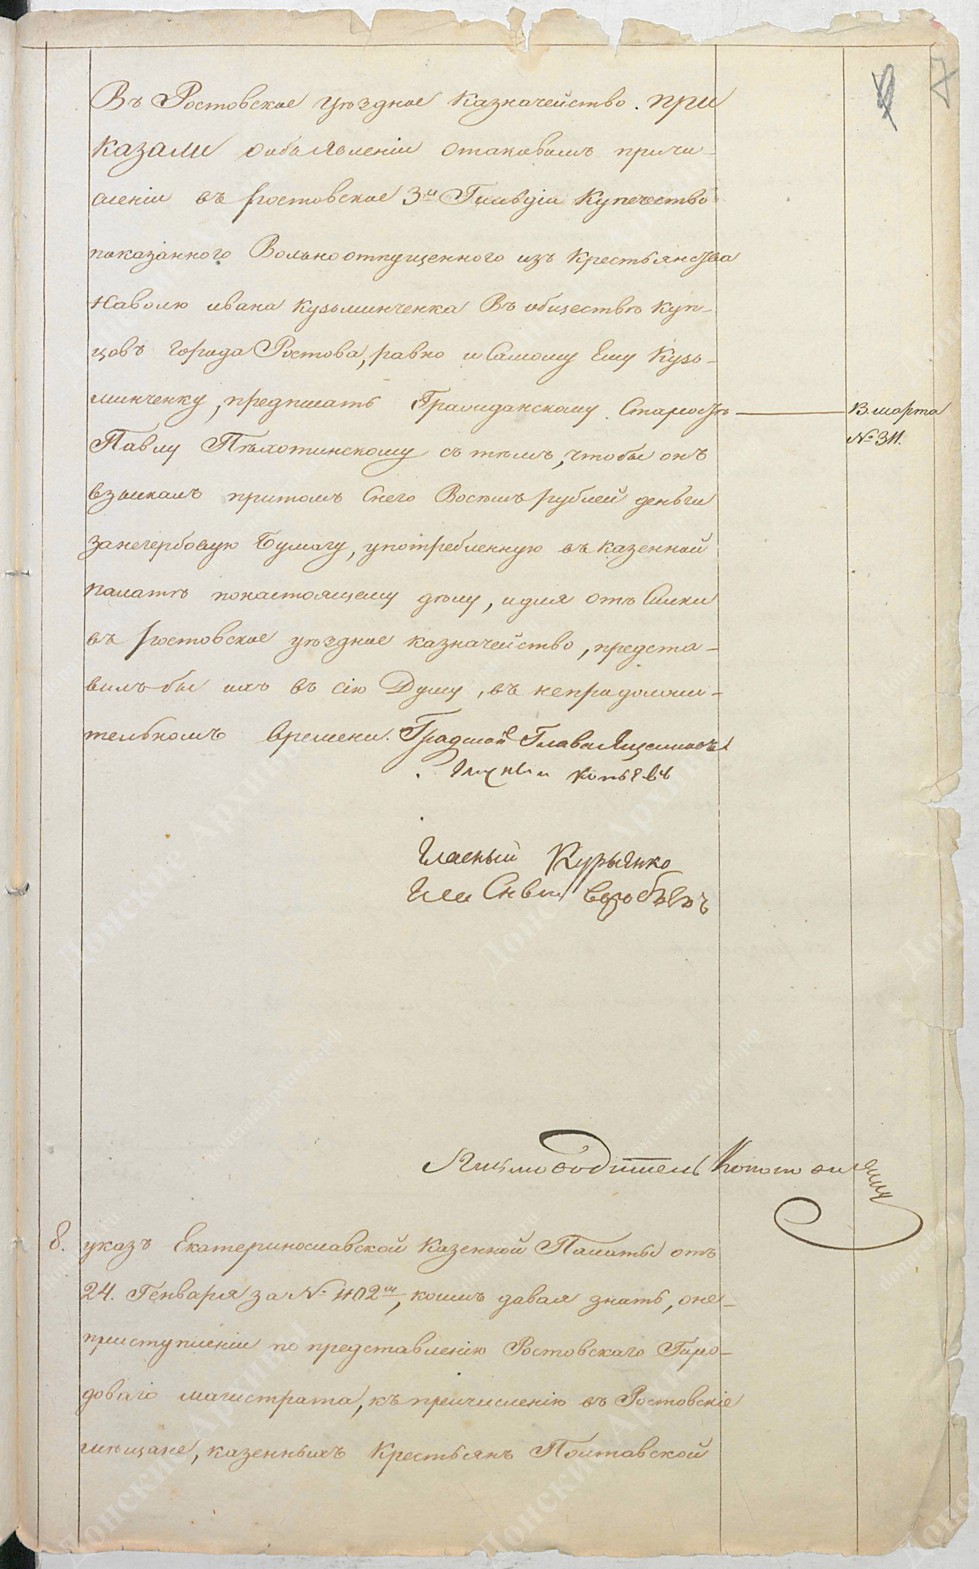 7
Въ Ростовское уѣздное Казначейство. При
казали объявленіи отаковомъ причи-
сленіи въ ростовское 3й Гильдіи Купечество
показаннаго Вольноотпущенного изъ Крестьянства
Наволю ивана Кузьминченка Въ обществѣ Куп-
цовъ Города Ростова, равно и Самому Ему Кузь-
минченку, предписать Гражданскому Старостѣ
13. марта
№ 311.
Павлу Пѣхотинскому съ тѣмъ, чтобы онъ
взыскалъ притомъ Снего Восемь рублей деньги
занегербовую Бумагу, употребленную въ казенной
палатѣ понастоящему дѣлу, и для отъ Сылки
въ ростовское уѣздное казначейство, предста-
вилъ-бы ихъ въ сію Думу, въ непродолжи-
тельномъ Времени. Градской Глава
Гласный Курынко
Воробьевъ
Письмоводитель
8. указъ Екатеринославской Казенной Палаты отъ
24. Генваря за № 402м, коимъ давая знать, оне-
приступленіи по представленію Ростовскаго Горо-
доваго магистрата, къ причисленію въ Ростовскіе
мѣщане, казенныхъ Крестьянъ Полтавской